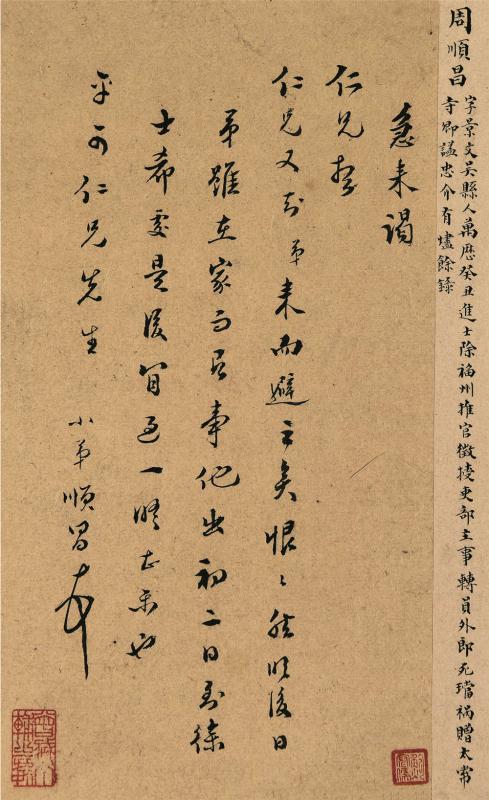 周順昌
字景文吳縣人萬曆癸丑進士除福州推官徵授吏部主事轉員外郎死璫禍贈太常
寺卿諡忠介有燼餘錄
急來謁
仁兄
仁兄又知弟來而避之矣恨〻然明後日
弟雖在家而有事他出初二日到徐
士希處是後間過一晤
平可仁兄先生
小弟順昌